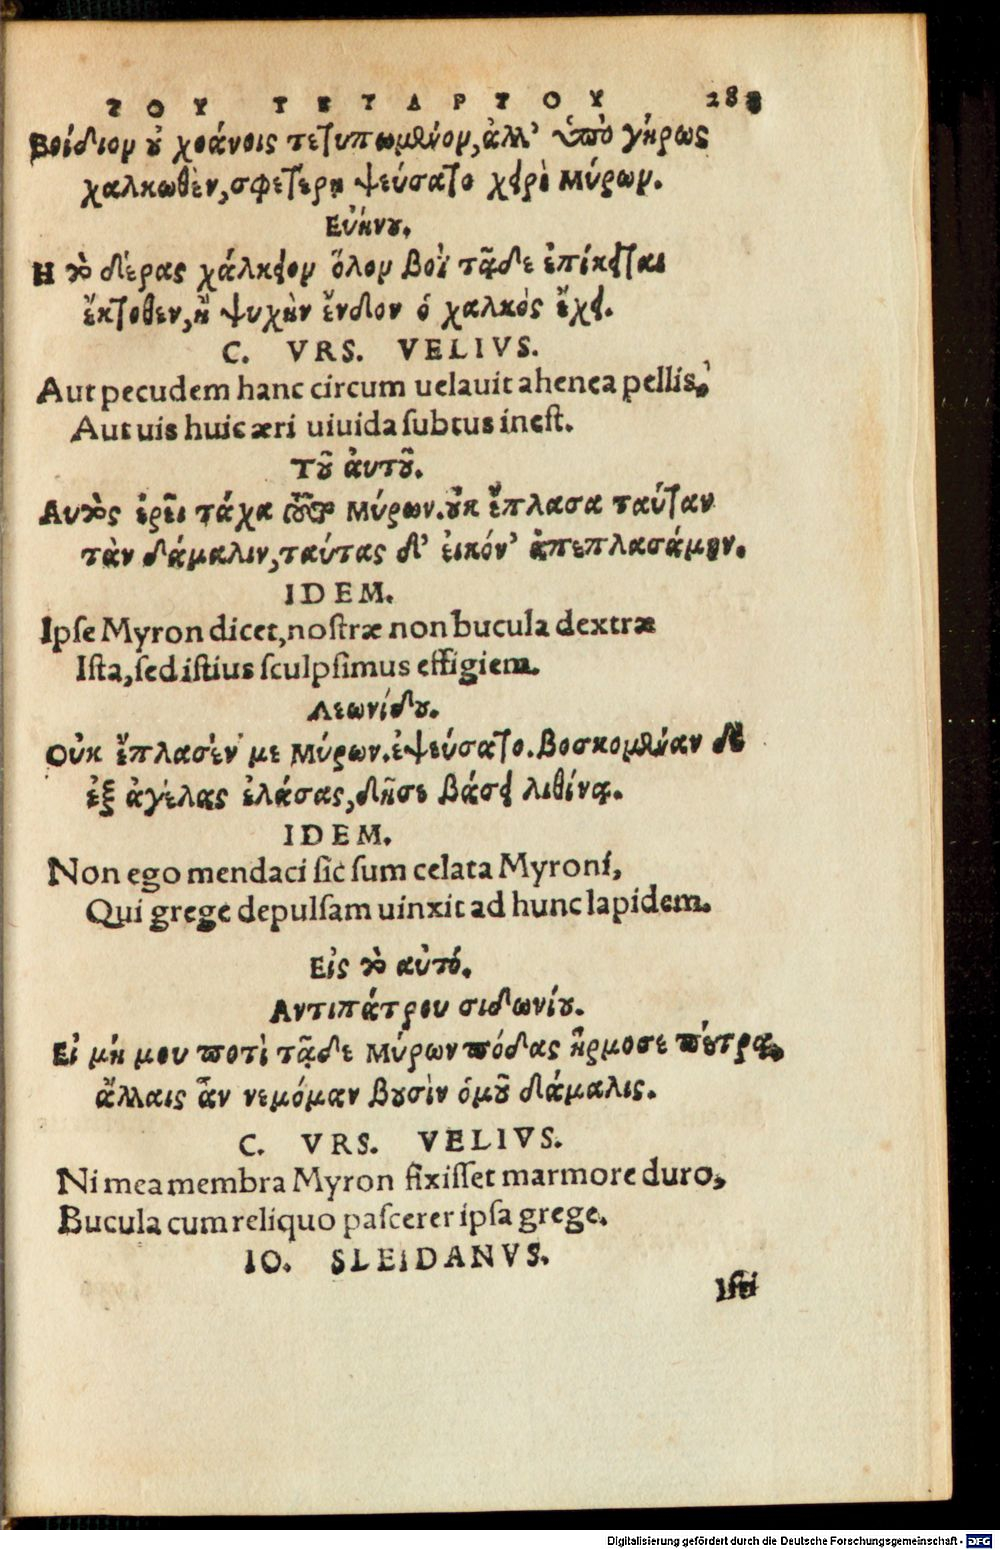 ΤΟΥ ΤΕΤΑΡΤΟΥ 28
Βοίδιον οὐ χοάνοις τετυπωμένον, ἀλλ' ὑπὸ γήρως
χαλκωθὲν, σφετέρῃ ψεύσατο χειρὶ Μύρων.
Εὐήνου.
Η τὸ δέρας χάλκειον ὅλον βοῒ τᾷδε ἐπίκειται
ἔκτοθεν, ἢ ψυχὴν ἔνδον ὁ χαλκὸς ἔχει.
C. VRS. VELIVS.
Aut pecudem hanc circum uelauit ahenea pellis,
Aut uis huic æri uiuida subtus inest.
Τοῦ ἀυτοῦ.
Αυτὸς ἐρεῖ τάχα τοῦτο Μύρων. οὐκ ἔπλασα ταύταν
τὰν δάμαλιν, ταύτας δ' ἐικόν' ἀπεπλασάμην.
IDEM.
Ipse Myron dicet, nostræ non bucula dextræ
Ista, sed istius sculpsimus effigiem.
Λεωνίδου.
Οὐκ ἔπλασέν με Μύρων. ἐψεύσατο. βοσκομέναν δὲ
ἐξ ἀγέλας ἐλάσας, δῆσε βάσει λιθίνᾳ.
IDEM.
Non ego mendaci sic sum celata Myroni,
Qui grege depulsam uinxit ad hunc lapidem.
Εἰς τὸ αὐτό.
Αντιπάτρου σιδωνίου.
Εἰ μή μου ποτὶ τᾷδε Μύρων πόδας ἥρμοσε πέτρᾳ,
ἄλλαις ἂν νεμόμαν βουσὶν ὁμοῦ δάμαλις.
C. VRS. VELIVS.
Ni mea membra Myron fixisset marmore duro,
Bucula cum reliquo pascerer ipsa grege.
IO. SLEIDANVS.
Isti
Digitalisierung gefördert durch die Deutsche Forschungsgemeinschaft - DFG